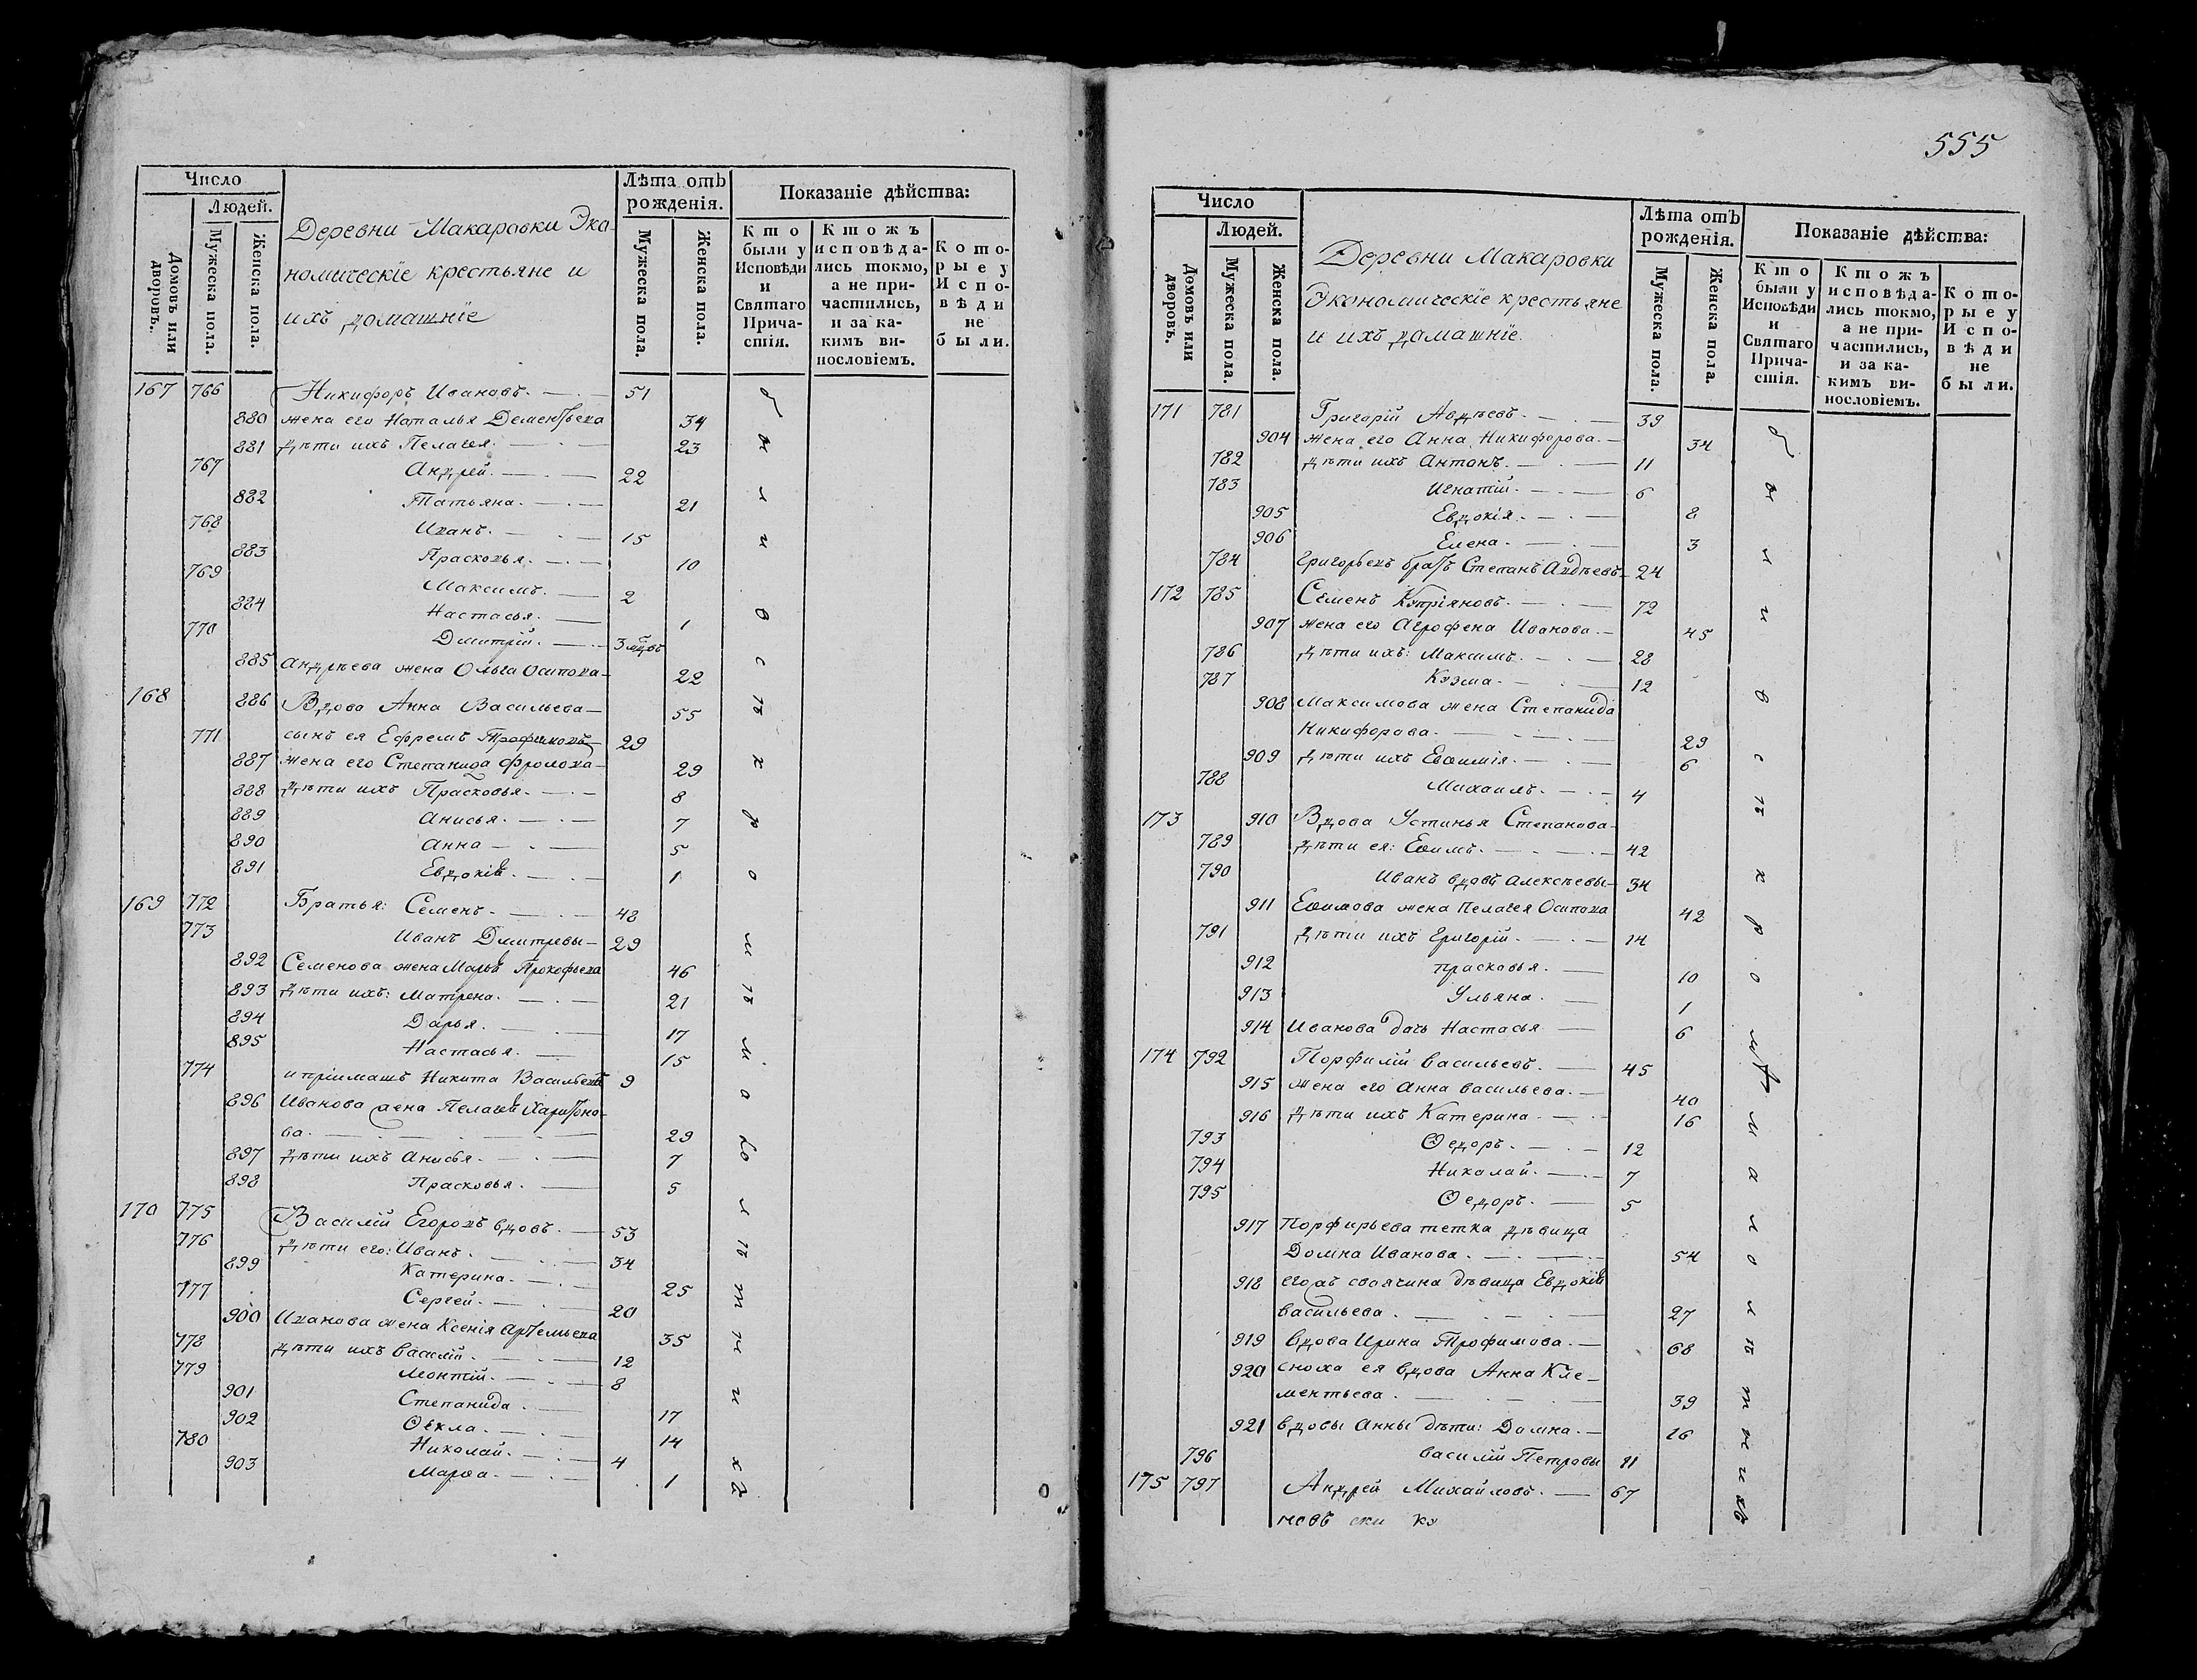 Число
Людей.
Домовъ или дворовъ.
Мужеска пола.
Женска пола.
Деревни Макаровки Эко-
номическіе крестьяне и
ихъ домашніе
Лѣта отъ рожденія.
Мужеска пола.
Женска пола.
Показаніе дѣйства:
Кто были у Исповѣди и Святаго Прича-стія.
Ктожъ исповѣда-лись токмо, а не при-частились, и за ка-кимъ ви-нословіемъ.
Кото-рые у Испо-вѣди не были.
167 766 Никифоръ Ивановъ. 51
880 жена его Наталья Дементьева 34
881 дѣти ихъ Пелагея. 23
767 Андрей. 22
882 Татьяна. 21
768 Иванъ. 15
883 Прасковья. 10
769 Максимъ. 2
884 Настасья. 1
770 Дмитрій. 3
885 Андрѣева жена Ольга Осипова 22
168 886 Вдова Анна Васильева 55
771 сынъ ея Ефремъ Трофимовъ 29
887 жена его Степанида Фролова 29
888 Дѣти ихъ Прасковья. 8
889 Анисья. 7
890 Анна 5
891 Евдокія. 1
169 772 Братья: Семенъ. 48
773 Иванъ Дмитревы 29
892 Семенова жена Марья Прокофьева 46
893 Дѣти ихъ: Матрена. 21
894 Дарья. 17
895 Настасья. 15
774 и пріимашъ Никита Васильевъ 9
896 Иванова жена Пелагея Харитоно-
ва. 29
897 Дѣти ихъ Анисья. 7
898 Прасковья. 5
170 775 Василій Егоровъ вдовъ. 53
776 дѣти его: Иванъ. 34
899 Катерина. 25
777 Сергей. 20
900 Иванова жена Ксенія Артемьева 35
778 дѣти ихъ Василій. 12
779 Леонтій. 8
901 Степанида. 17
902 Ѳекла. 14
780 Николай. 4
903 Марѳа. 1
555
Число
Людей.
Домовъ или дворовъ.
Мужеска пола.
Женска пола.
Деревни Макаровки
Экономическіе крестьяне
и ихъ домашніе.
Лѣта отъ рожденія.
Мужеска пола.
Женска пола.
Показаніе дѣйства:
Кто были у Исповѣди и Святаго Прича-стія.
Ктожъ исповѣда-лись токмо, а не при-частились, и за ка-кимъ ви-нословіемъ.
Кото-рые у Испо-вѣди не были.
171 781 Григорій Авдѣевъ. 39
904 жена его Анна Никифорова. 34
782 дѣти ихъ Антонъ. 11
783 Игнатій. 6
905 Евдокія. 8
906 Елена. 3
784 Григорьевъ братъ Степанъ Авдѣевъ 24
172 785 Семенъ Купріяновъ. 72
907 жена его Агрофена Иванова. 45
786 Дѣти ихъ: Максимъ. 28
787 Кузма. 12
908 Максимова жена Степанида
Никифорова. 29
909 дѣти ихъ Евѳимія. 6
788 Михаилъ. 4
173 910 Вдова Устинья Степанова
789 Дѣти ея: Еѳимъ. 42
790 Иванъ вдовъ Алексѣевы 34
911 Еѳимова жена Пелагея Осипова 42
791 Дѣти ихъ Григорій. 14
912 Прасковья. 10
913 Ульяна. 1
914 Иванова дочь Настасья 6
174 792 Порфилій Васильевъ. 45
915 жена его Анна Васильева. 40
916 Дѣти ихъ Катерина. 16
793 Ѳедоръ. 12
794 Николай. 7
795 Ѳедоръ. 5
917 Порфирьева тетка дѣвица
Домна Иванова. 54
918 его свояченица дѣвица Евдокія
Васильева. 27
919 Вдова Ирина Трофимова. 68
920 сноха ея вдова Анна Кле-
ментьева. 39
921 вдовы Анны дѣти: Домна. 16
796 Василій Петровы 11
175 797 Андрей Михайловъ. 67